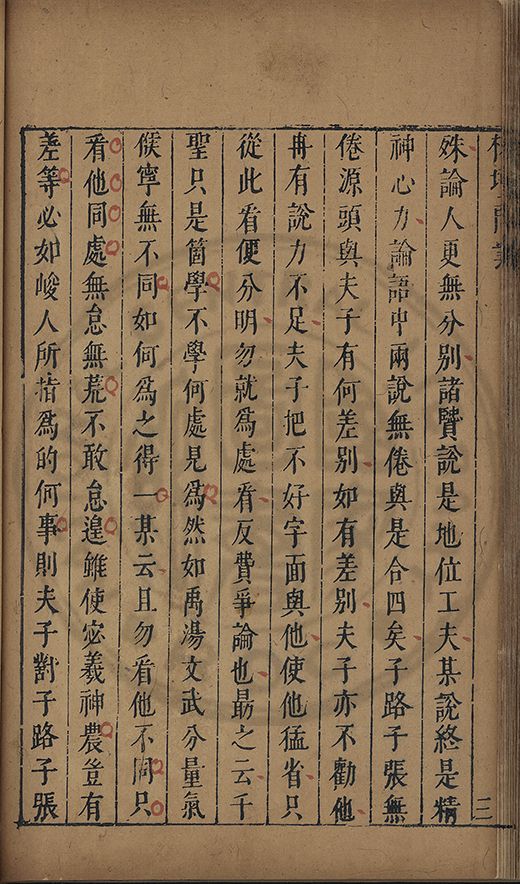 三
殊論人更無分別諸賢說是地位工夫某說終是精
神心力論語中兩說無倦與是合四矣子路子張無
倦源頭與夫子有何差別如有差別夫子亦不勸他
冉有說力不足夫子把不好字面與他使他猛省只
從此看便分明勿就爲處看反費爭論也最之云千
聖只是箇學不學何處見爲然如禹湯文武分量氣
候寧無不同如何爲之得一某云且勿看他不同只
看他同處無怠無荒不敢怠遑雖使宓羲神農豈有
差等必如峻人所指爲的何事則夫子對子路子張